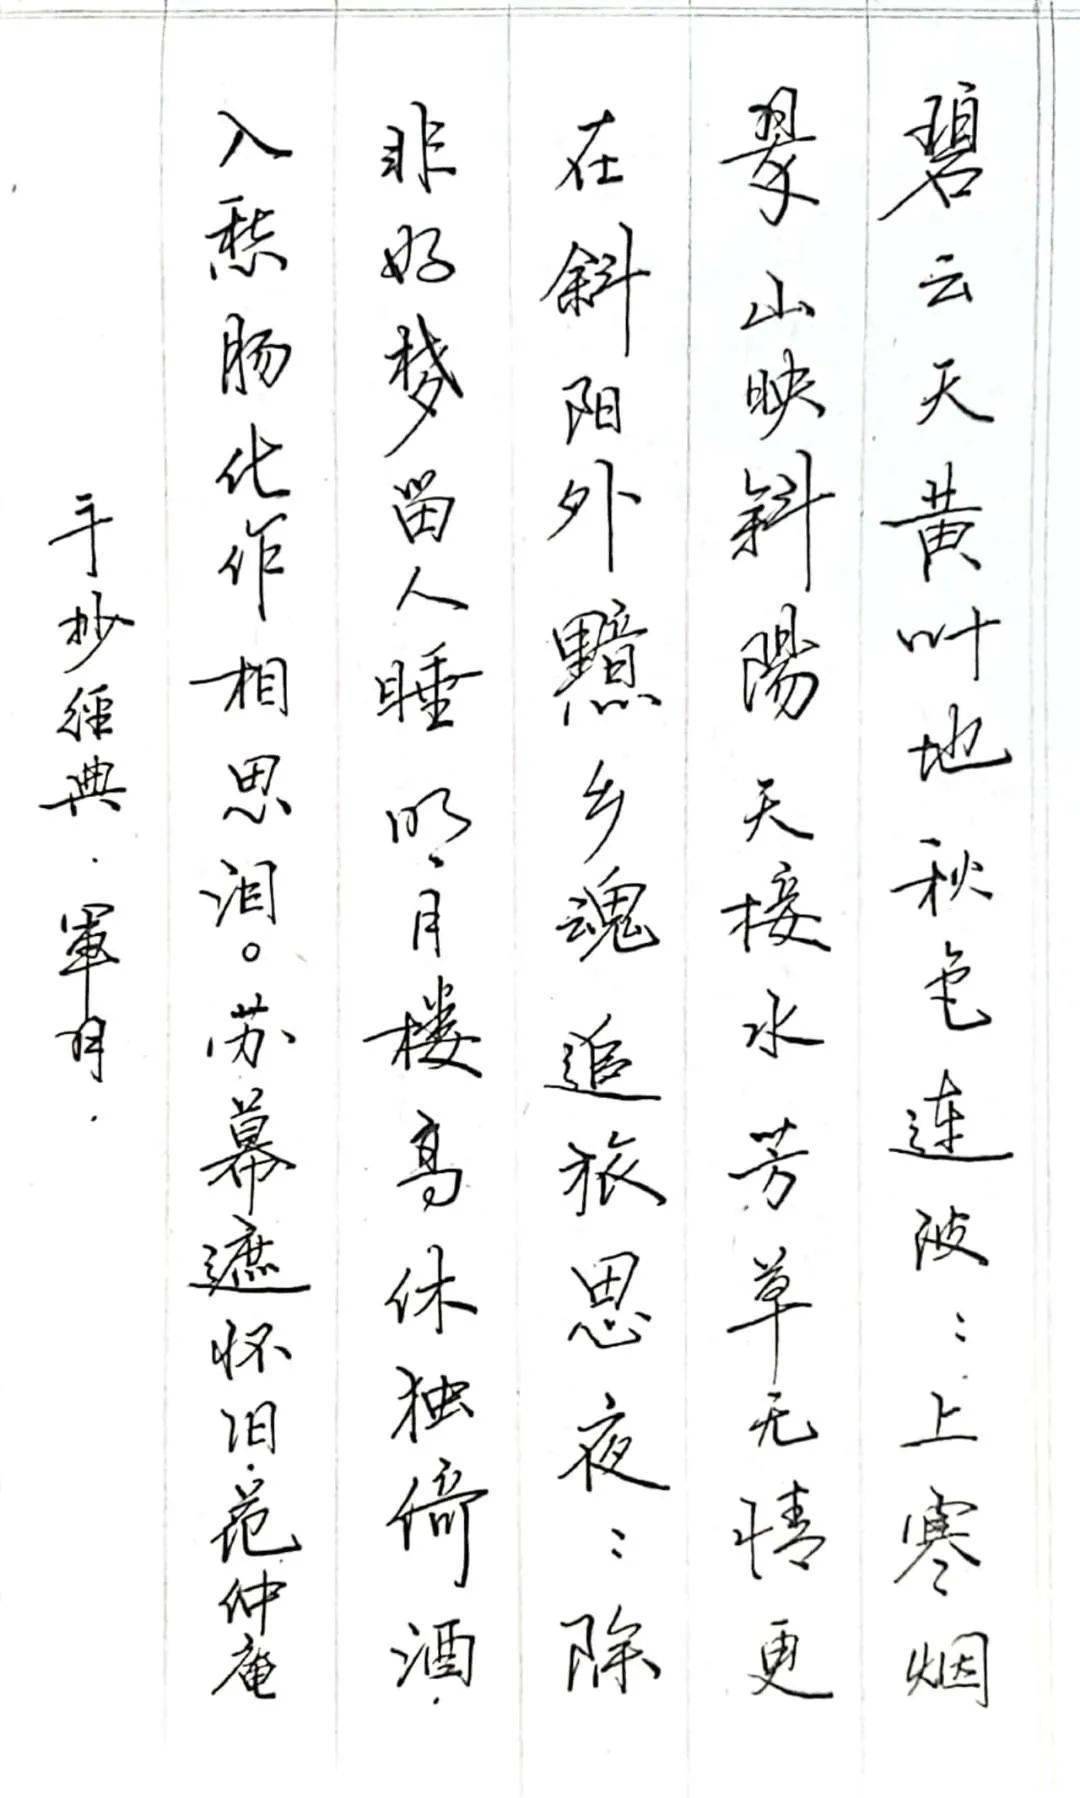 碧云天黄叶地秋色连波：上寒烟
翠山映斜陽天接水芳草无情更
在斜阳外黯乡魂追旅思夜：除
非好梦留人睡明月楼高休独倚酒
入愁肠化作相思泪。苏幕遮怀旧·范仲庵
手抄經典·軍月·